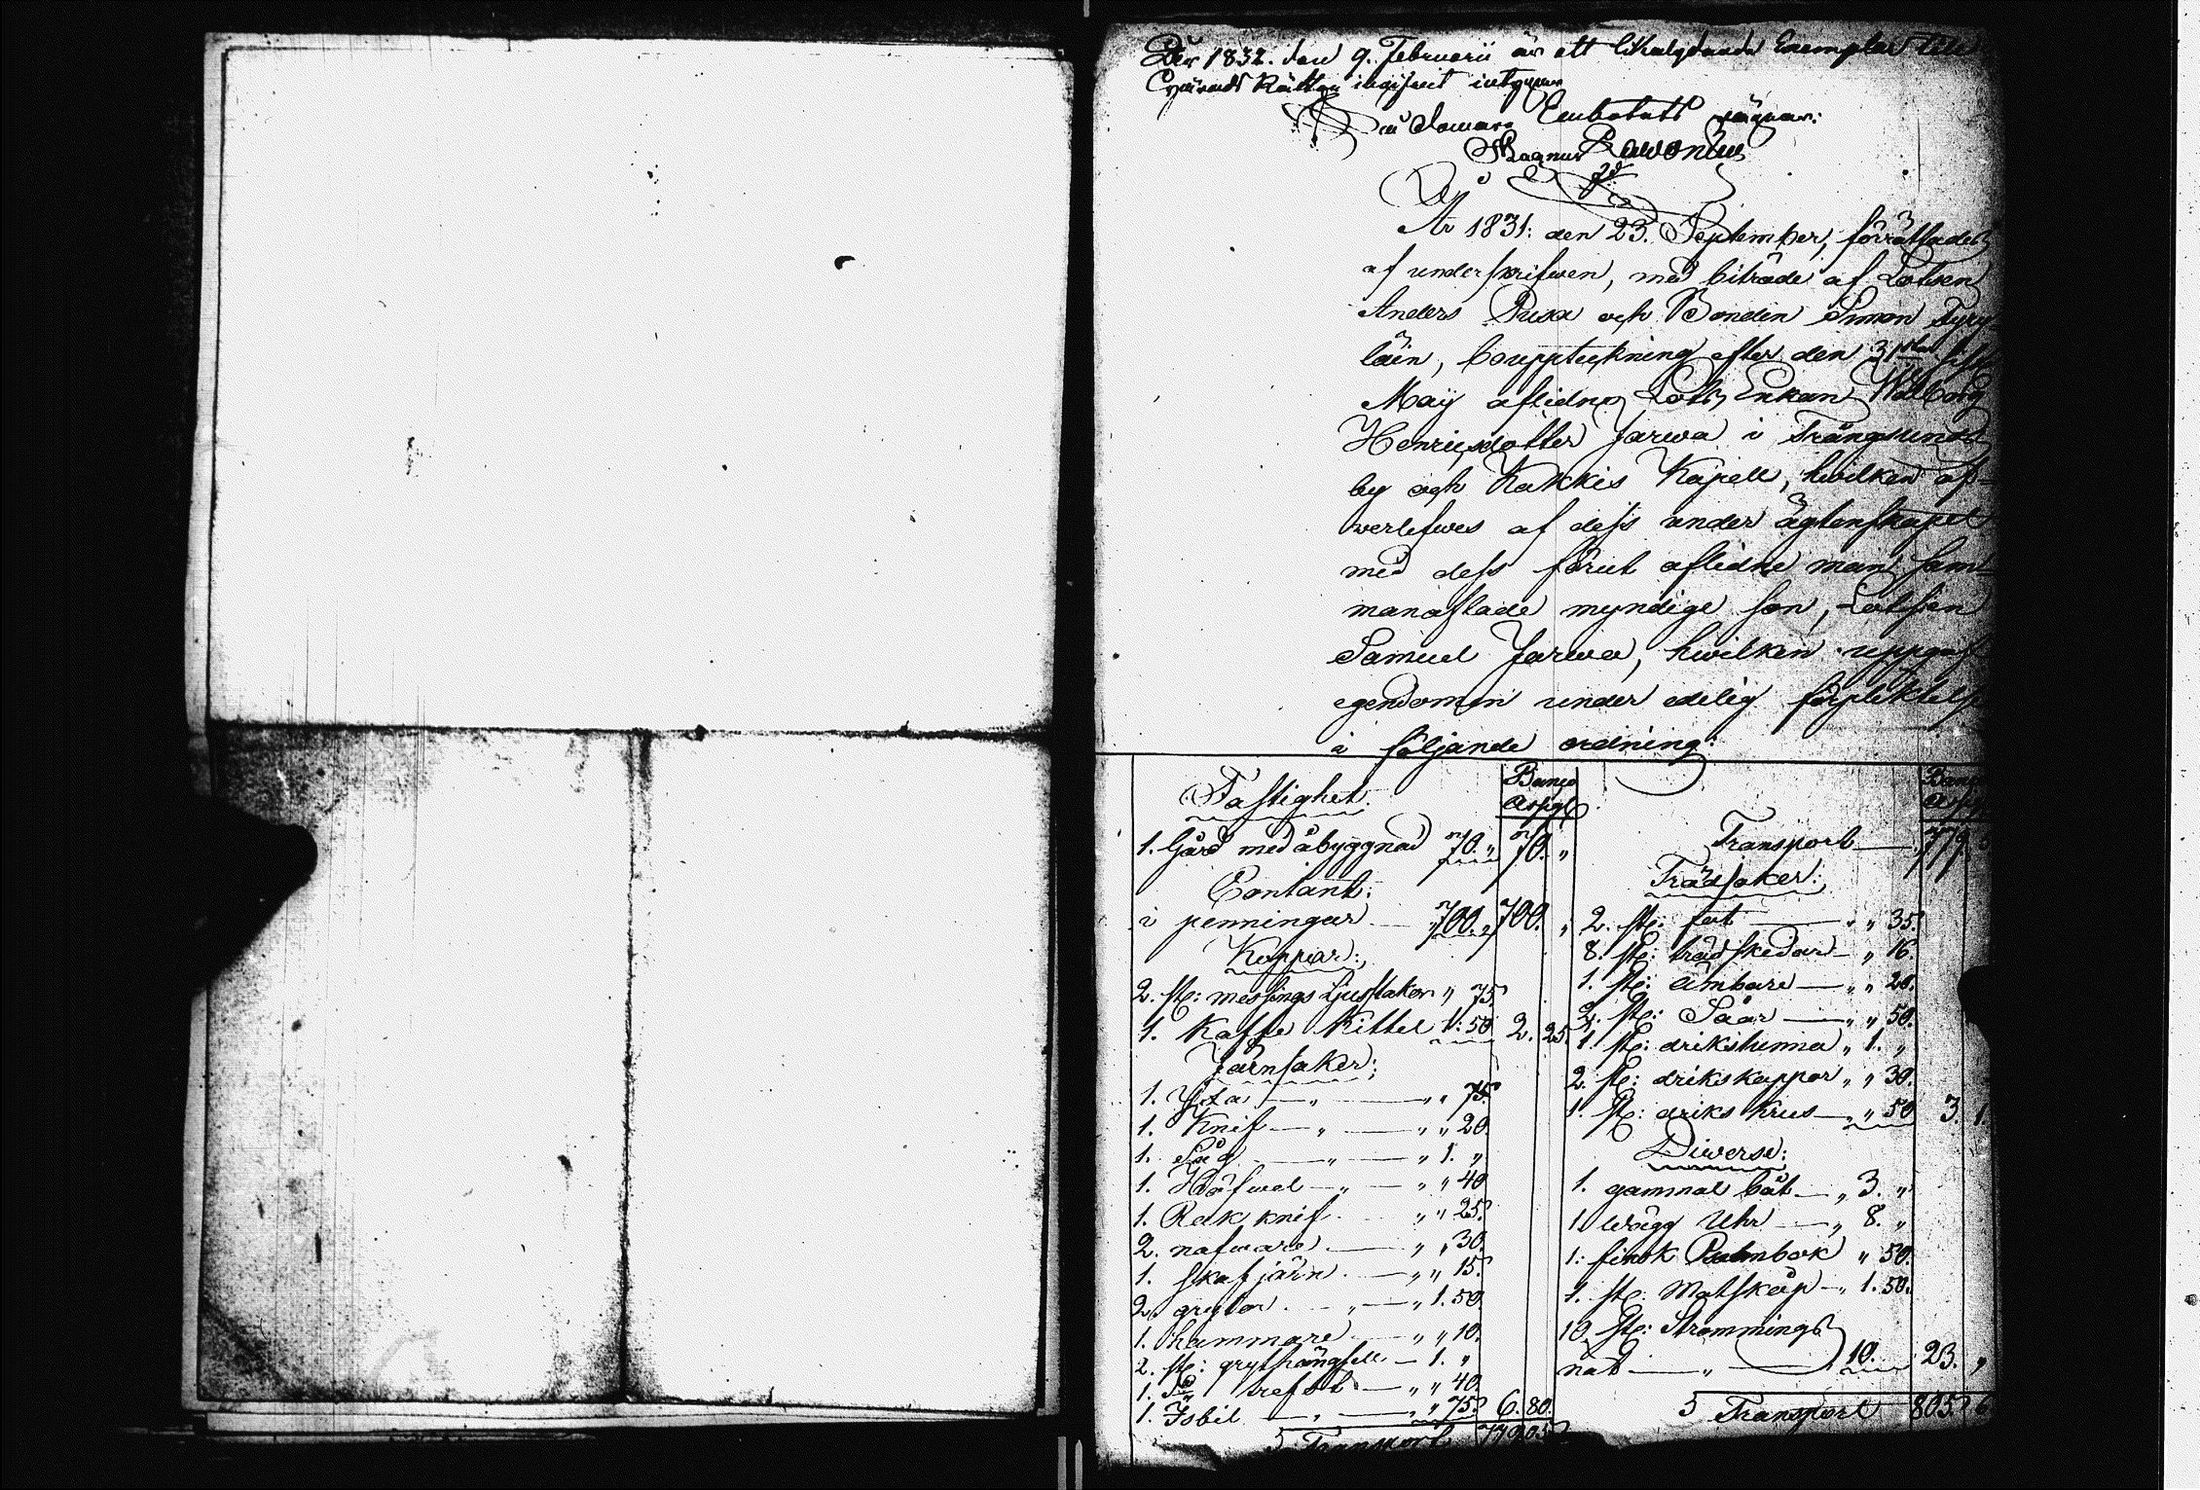 1832. den 9. Februarii är ett likalydande Exemplar till
Rätten ingifvit intygar
Embetets vägnar:
Magnus
År 1831: den 23. September, förrättades
af underskrifwen, med biträde af Lotsen
Anders Pusa och Bonden Simon Tyry
läin, bouppteckning efter den 31sta
Maij aflidna Lots Enkan Walborg
Henricsdotter Jarwa i Trångsunds
by och Kakkis Kapell, hwilken öf-
werlefwes af dess under ägtenskapet
med dess förut aflidne man sam-
manaflade myndige son, Lotsen
Samuel Jarwa, hwilken uppgaf
egendomen under edelig förpliktelse
i följande ordning:
Fastighet. Banco
Assign
1. Gård med åbyggnad 70. „ 70. „
Contant:
i penningar — 700. „ 700. „
Koppar:
2. st: messings Ljusstakar „ 75.
1. Kaffe Kittel 1: 50. 2. 25.
Järnsaker:
1. Yxa — „ — „ „ 75.
1. Knif — „ — „ „ 20.
1. Såg — „ — „ 1. „
1. Höfwel — „ — „ „ 40
1. Rak knif „ „ 25.
2. nafware — „ „ 30.
1. skafjärn — „ „ 15.
2. grytor — „ — „ 1. 50.
1. hammare „ „ 10.
2. st: — 1. „
1. st: — „ „ 40.
1. Isbil — „ — „ „ 75. 6. 80.
Transport 779. 05.
Transport — 779.
Trädsaker:
2. st: fat — „ „ 35.
8. st: trädskedar — „ 16.
1. st: ämbare — „ „ 20.
2. st: Såar — „ „ 50.
1. st: drikstunna „ 1. „
2. st: drikskappor „ „ 30.
1. st: driks krus — „ „ 50 3. 1.
Diverse:
1. gammal båt — „ 3. „
1. wägg Uhr — „ 8. „
1: finsk Psalmbok „ 50.
1. st: Matskåp — „ 1. 50.
10. st: Strömmings
nät — „ — 10. 23. „
Transport 805. 6